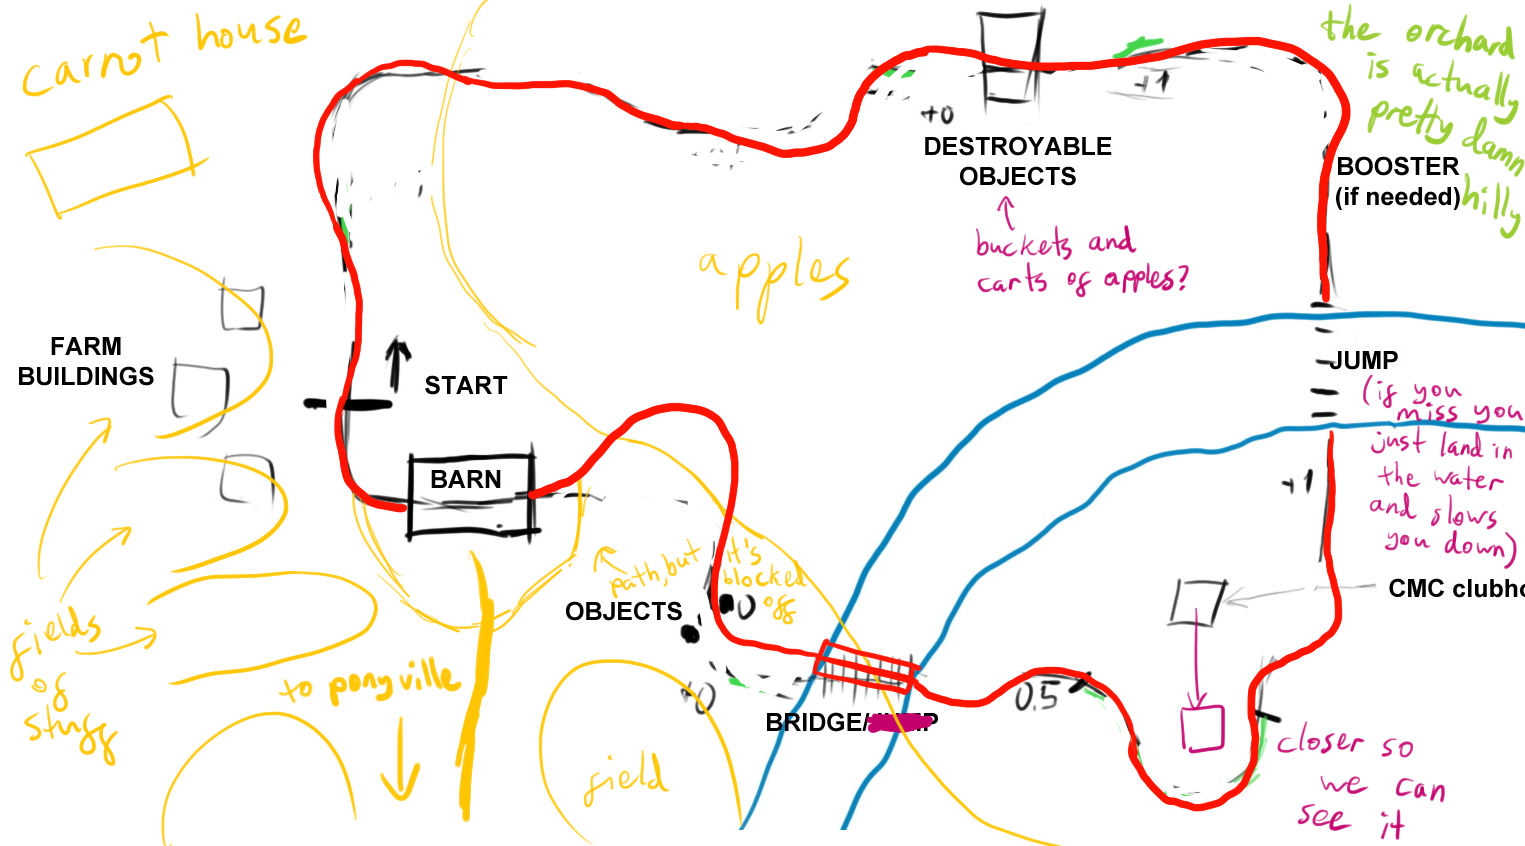 carrot house
the orchard
is actually
pretty damn
hilly
+0
+1
DESTROYABLE
OBJECTS
buckets and
carts of apples?
BOOSTER
(if needed)
apples
FARM
BUILDINGS
START
JUMP
(if you
miss you
just land in
the water
and slows
you down)
BARN
+1
path, but
it's
blocked
off
OBJECTS
CMC clubho
fields
of
stuff
to ponyville
0
+0
0.5
BRIDGE/
field
closer so
we can
see it